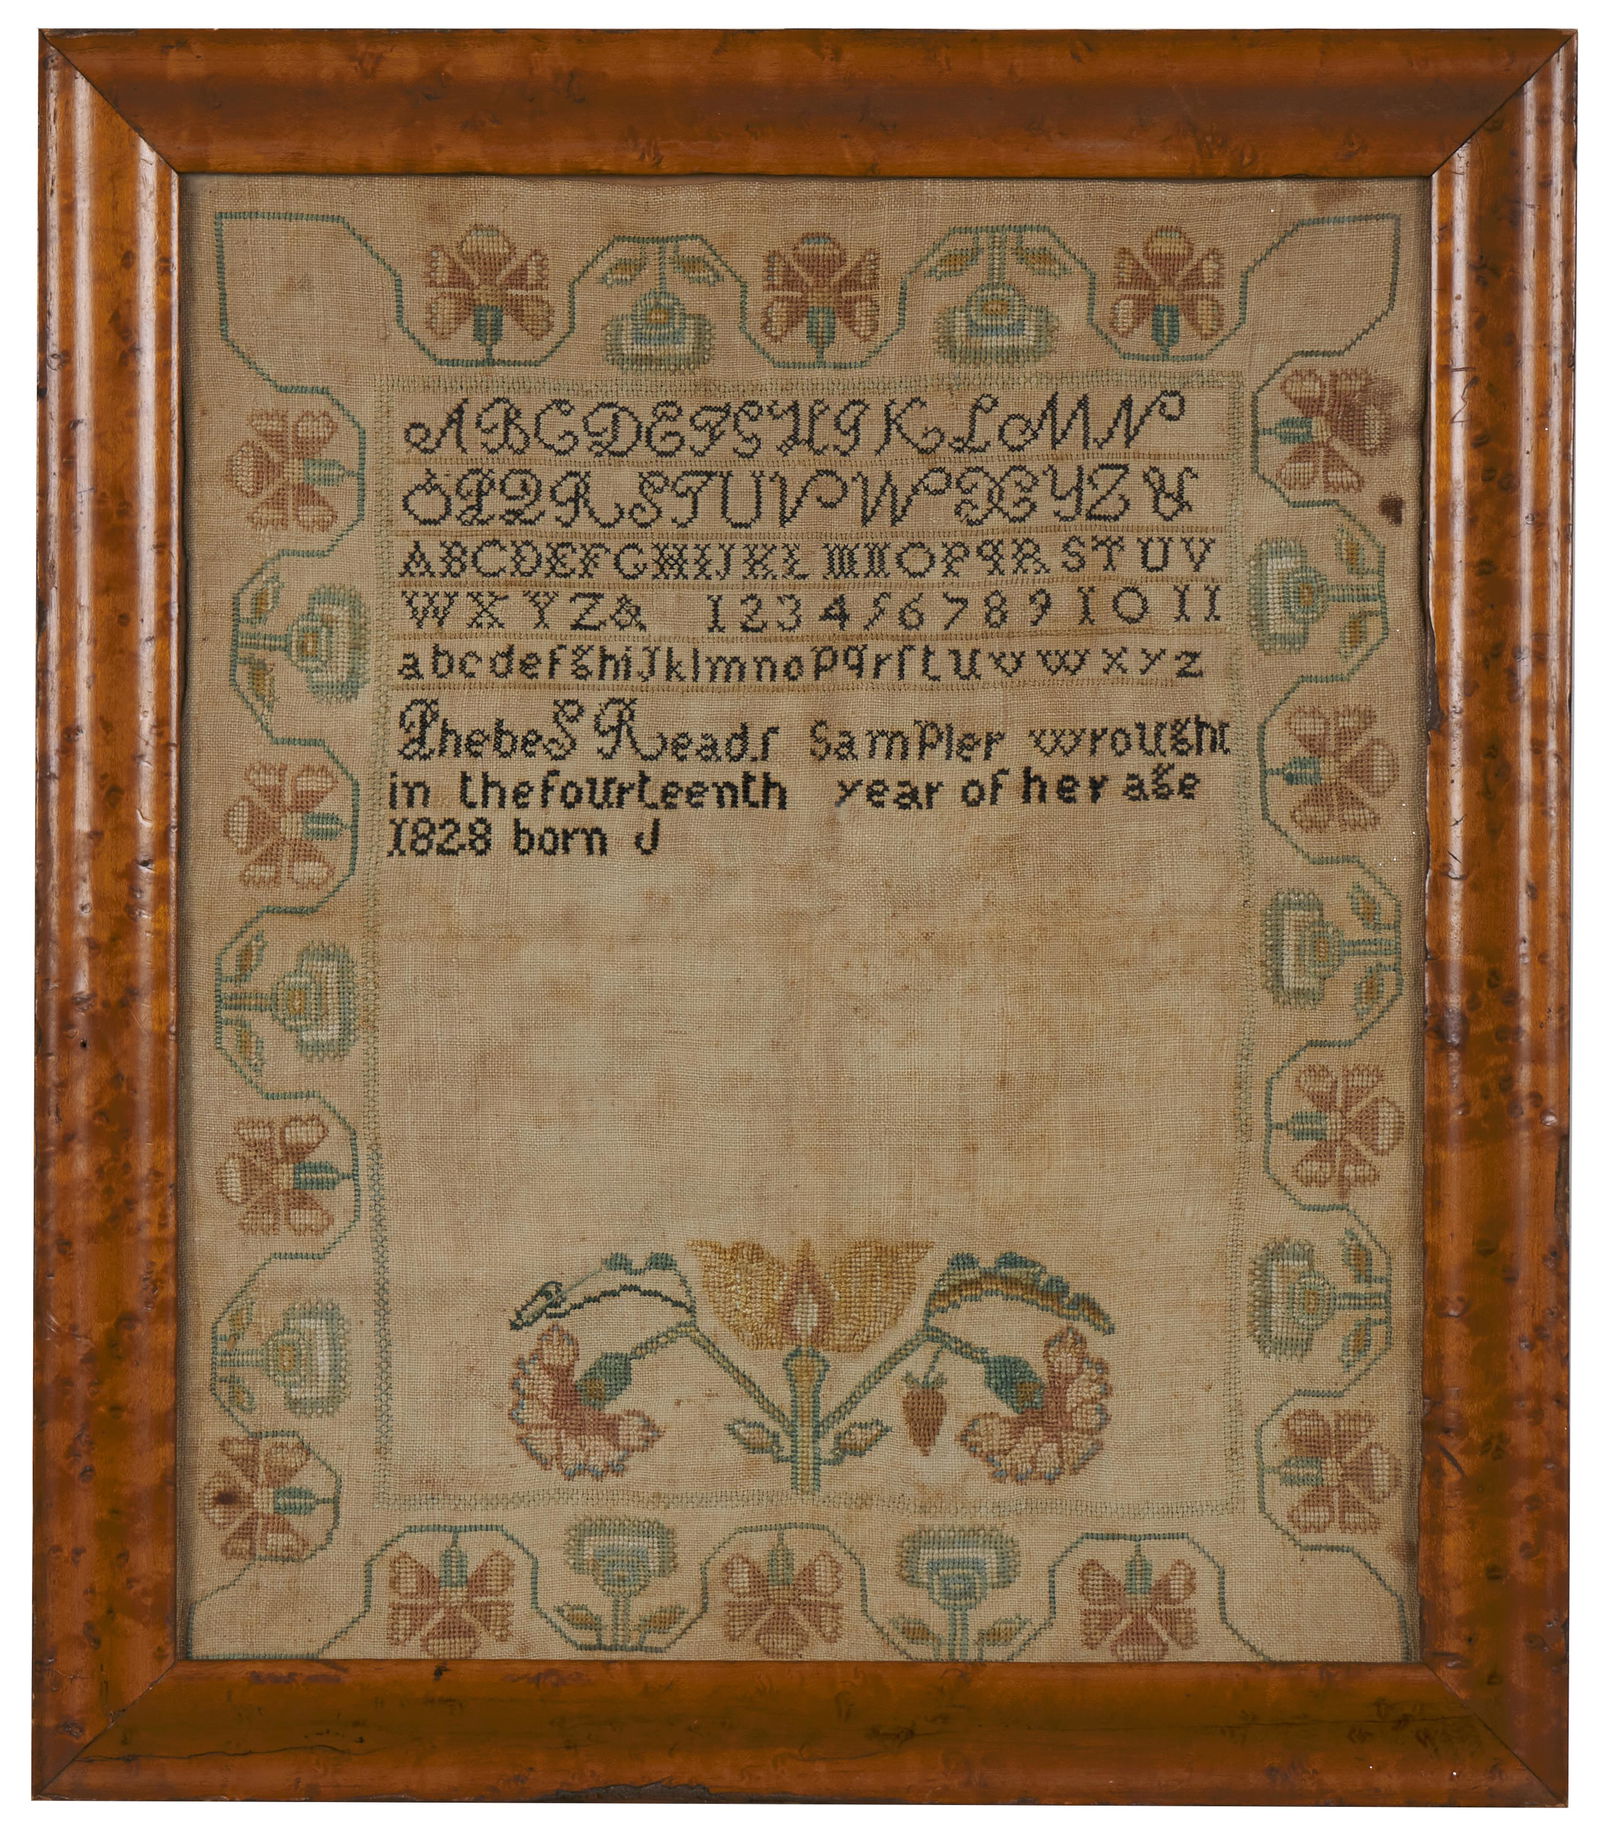 A B C D E F G H I K L M N
O P Q R S T U V W X Y Z &
A B C D E F G H I J K L M N O P Q R S T U V
W X Y Z & 1 2 3 4 5 6 7 8 9 10 11
a b c d e f g h i j k l m n o p q r ſ t u v w x y z
Phebe S Readſ Sampler wrought
in the fourteenth year of her age
1828 born J